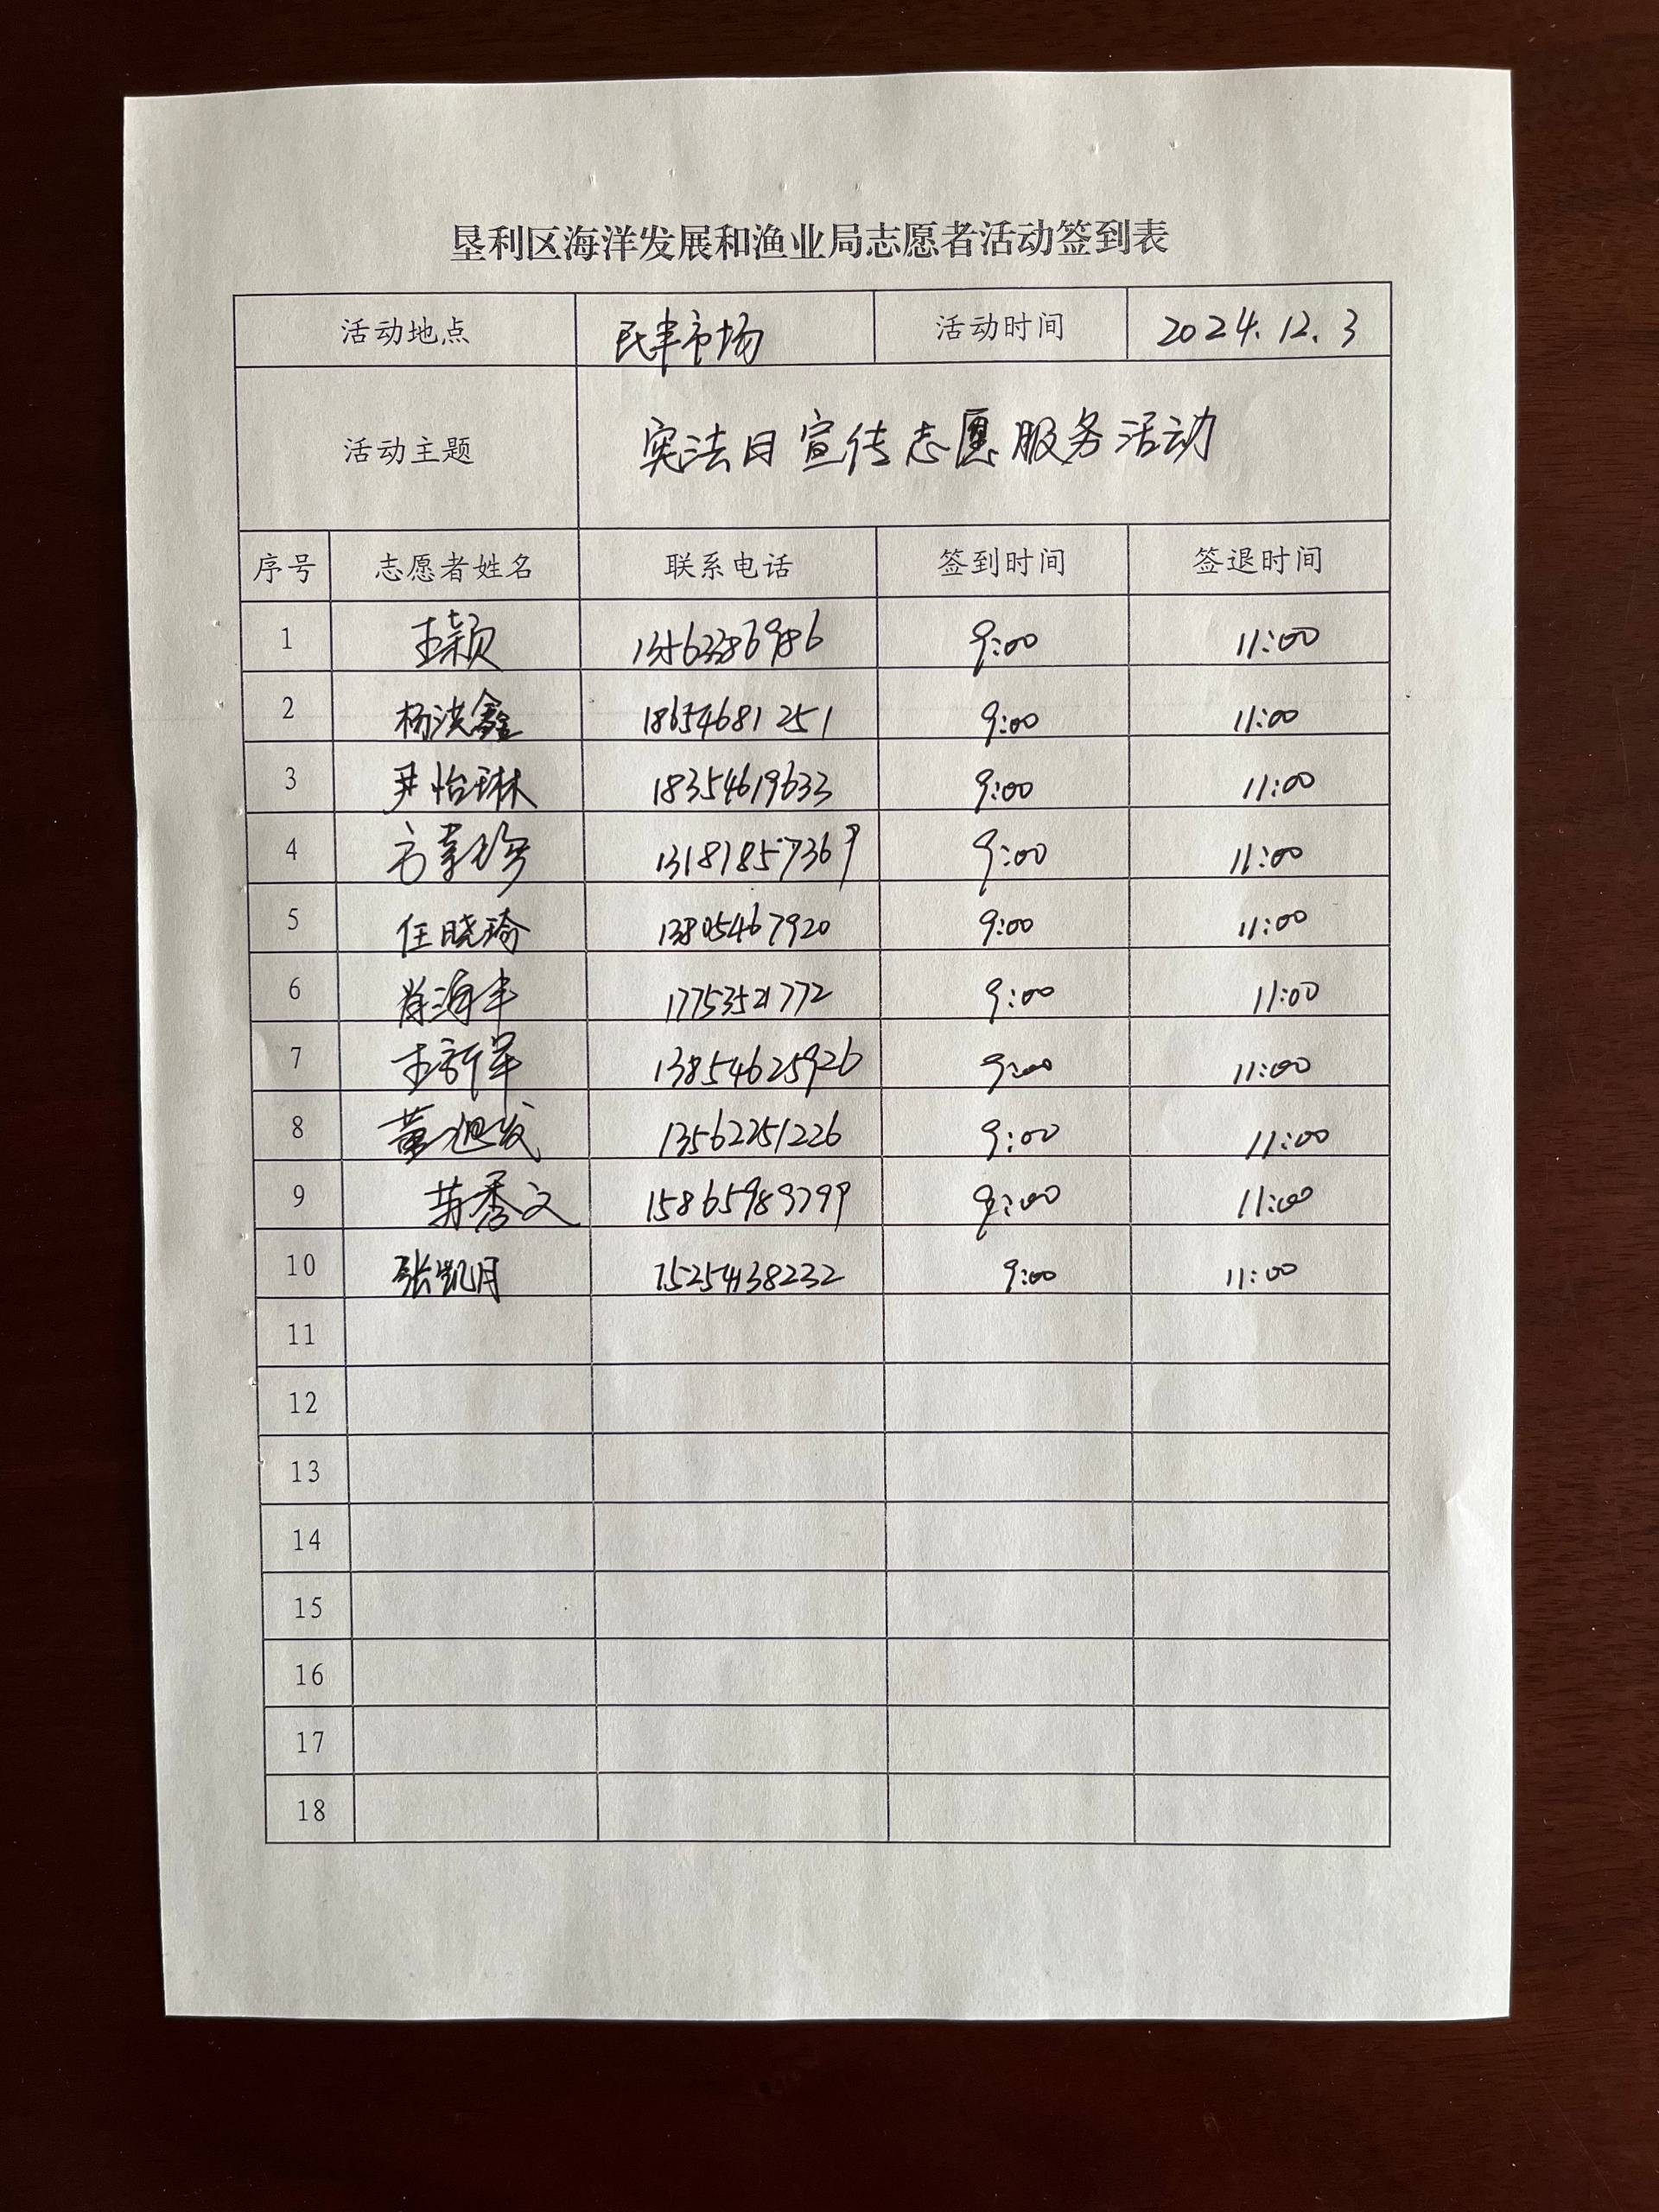 垦利区海洋发展和渔业局志愿者活动签到表
活动地点 民丰市场 活动时间 2024.12.3
活动主题 宪法日宣传志愿服务活动
序号 志愿者姓名 联系电话 签到时间 签退时间
1 王颖 13563386986 9:00 11:00
2 杨洪鑫 18654681251 9:00 11:00
3 尹怡琳 18354619633 9:00 11:00
4 13181857369 9:00 11:00
5 任晓琦 13805467920 9:00 11:00
6 肖海丰 17753521772 9:00 11:00
7 王新军 13854625926 9:00 11:00
8 黄旭发 13562251226 9:00 11:00
9 秀文 9:00 11:00
10 张凯月 15254138232 9:00 11:00
11
12
13
14
15
16
17
18